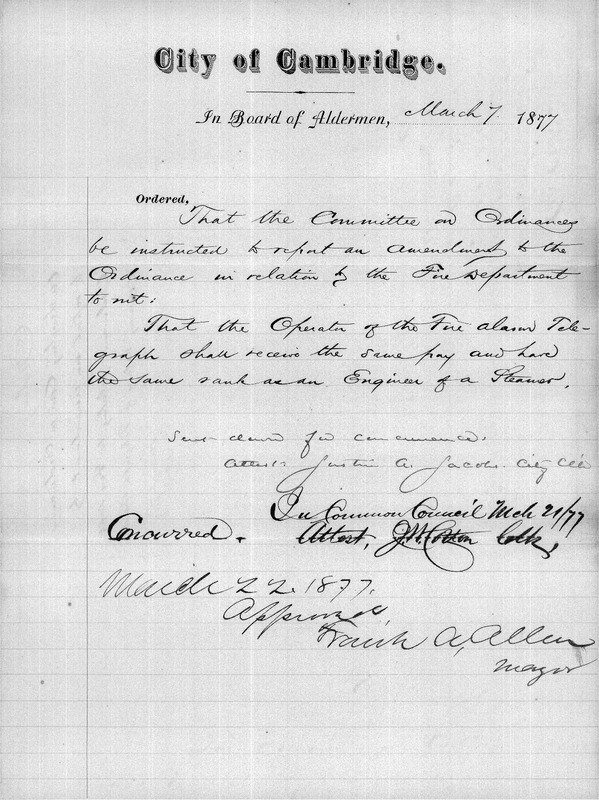 City of Cambridge.
In Board of Aldermen, March 7 1877
Ordered,
That the Committee on Ordinances
be instructed to report an amendment to the
Ordinance in relation to the Fire Department
to wit:
That the Operator of the Fire alarm Tele-
graph shall receive the same pay and have
the same rank as an Engineer of a Steamer.
Sent down for concurrence.
Attest: Justin A. Jacobs. City Clk
In Common Council Mch 21/77
Concurred. Attest, J.W. Cotton Clk,
March 22. 1877.
Approved,
Frank A. Allen
Mayor